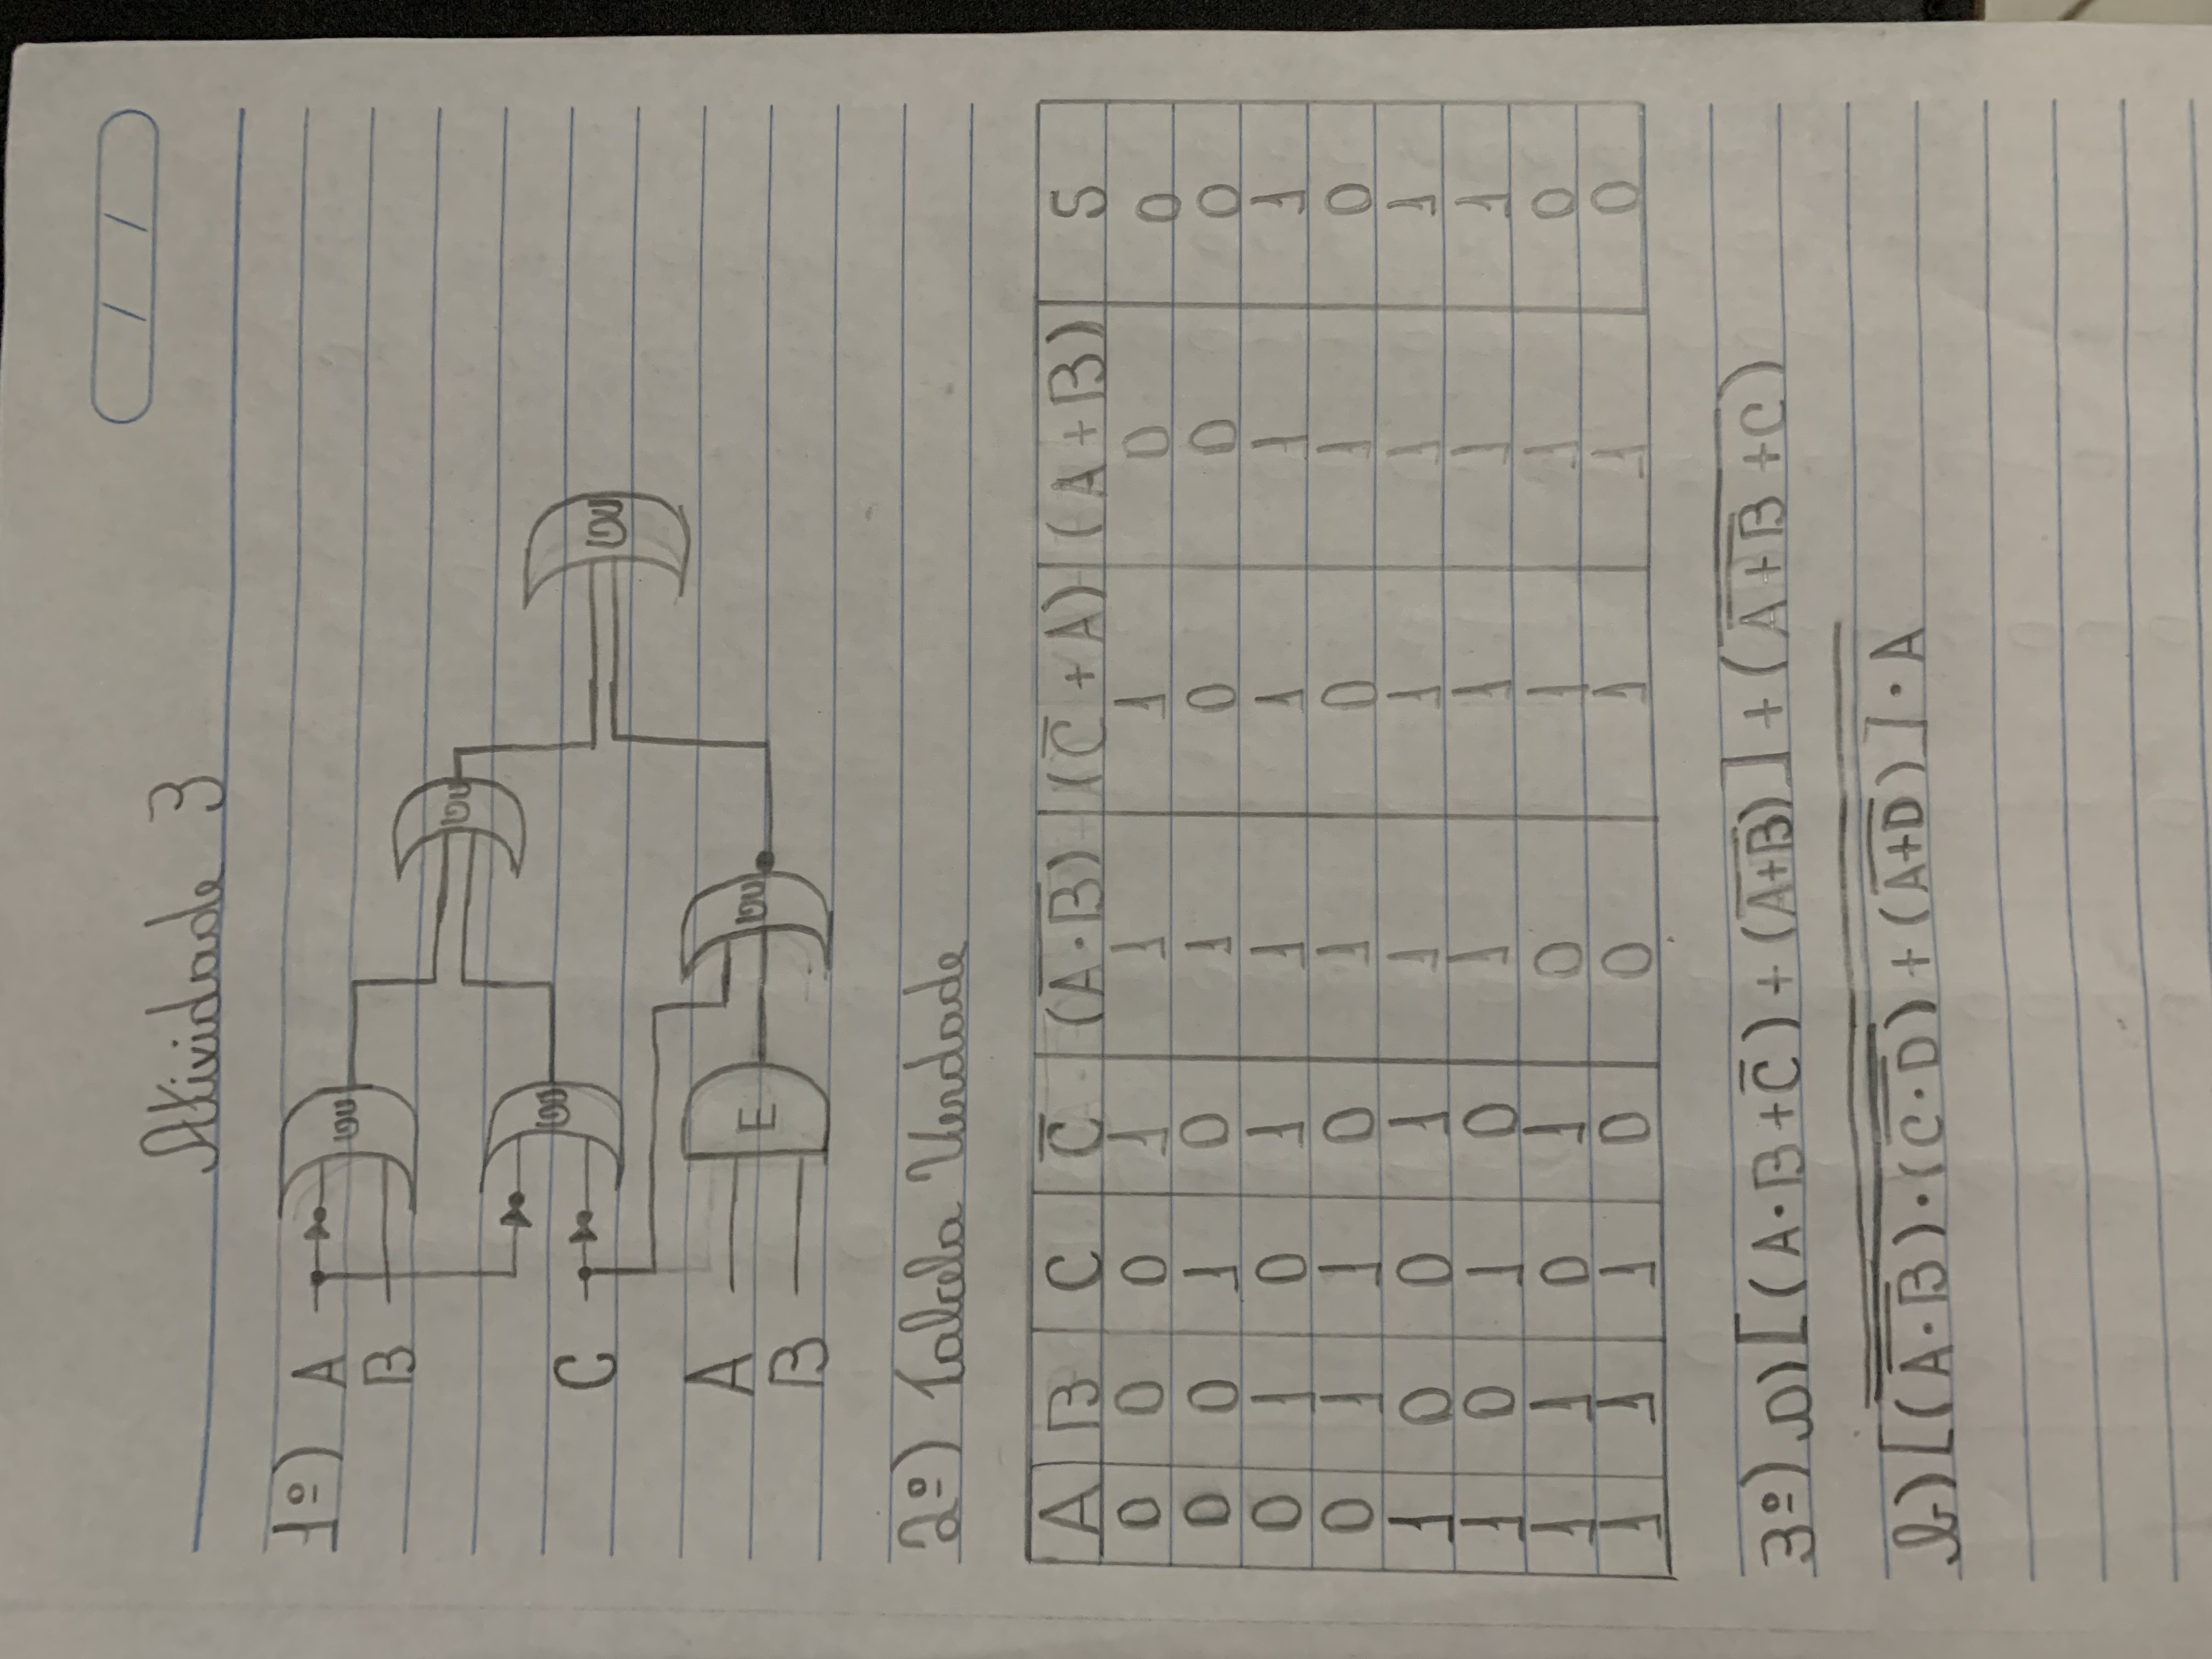 / /
Atividade 3
1º) A
OU
B
OU
C
OU
OU
A
E
OU
B
2º) Tabela Verdade
A B C C̅ (A̅·̅B̅) (C̅ + A) (A + B) S
0 0 0 1 1 1 0 0
0 0 1 0 1 0 0 0
0 1 0 1 1 1 1 1
0 1 1 0 1 0 1 0
1 0 0 1 1 1 1 1
1 0 1 0 1 1 1 1
1 1 0 1 0 1 1 0
1 1 1 0 0 1 1 0
3º) a) [(A·B+C̅) + (A̅+̅B̅)] + (\overline{\overline{A+B}+C})
b) [\overline{\overline{(\overline{A·B})·(\overline{C·D})} + (\overline{A+D})] · A}